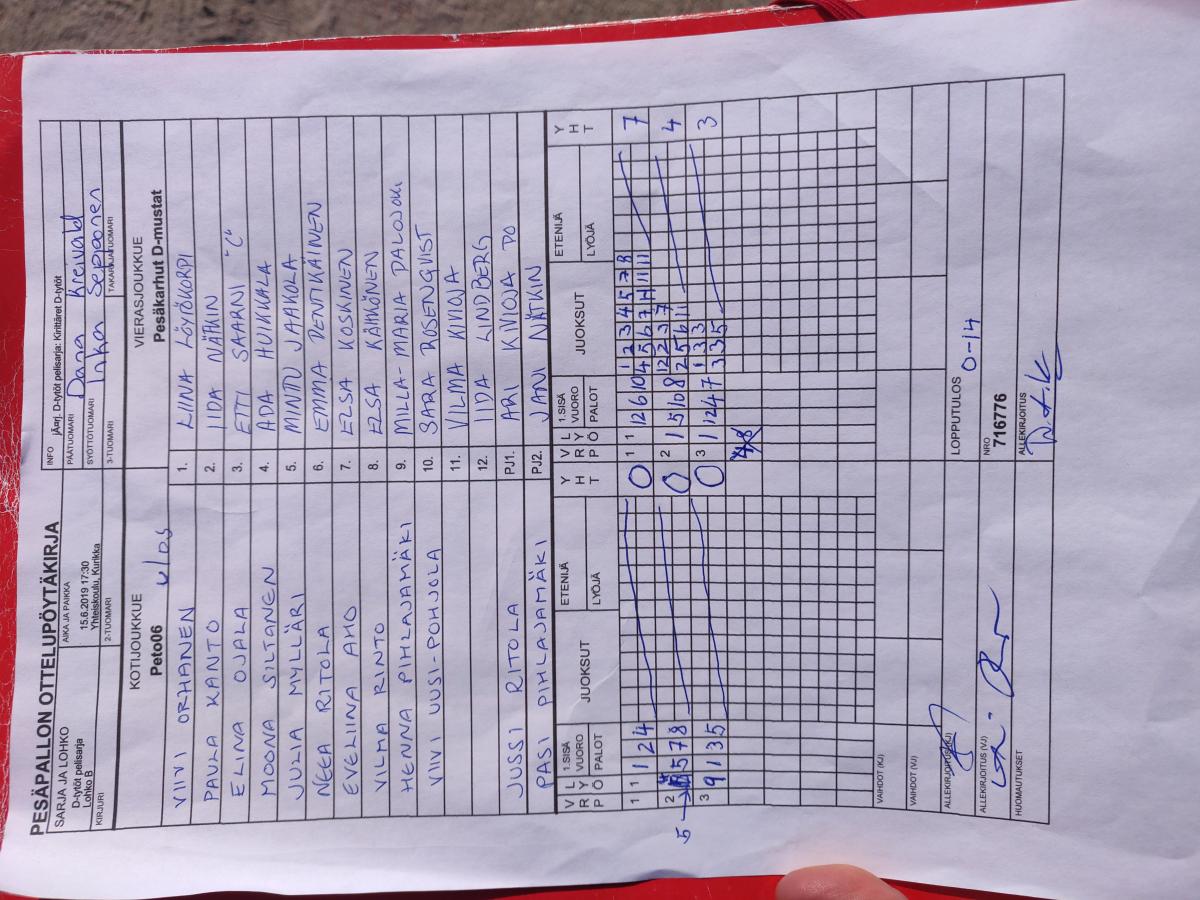 PESÄPALLON OTTELUPÖYTÄKIRJA
SARJA JA LOHKO
D-tytöt pelisarja
Lohko B
AIKA JA PAIKKA
15.6.2019 17:30
Yhteiskoulu, Kurikka
INFO jÄarj. D-tytöt pelisarja: Kirittäret D-tytöt
PÄÄTUOMARI Dana Kreivald
SYÖTTÖTUOMARI Inka Sepponen
KIRJURI 2-TUOMARI 3-TUOMARI TAKARAJATUOMARI
KOTIJOUKKUE VIERASJOUKKUE
Peto06 ulos Pesäkarhut D-mustat
VIIVI ORHANEN 1. LIINA LÖYTÖKORPI
PAULA KANTO 2. IIDA NÄTKIN
ELINA OJALA 3. ETTI SAARNI "C"
MOONA SILTANEN 4. ADA HUIKKALA
JULIA MYLLÄRI 5. MINTTU JAAKOLA
NEEA RITOLA 6. EMMA PENTIKÄINEN
EVELIINA AHO 7. ELSA KOSKINEN
VILMA RINTO 8. ELSA KÄHKÖNEN
HENNA PIHLAJAMÄKI 9. MILLA-MARIA PALOJOKI
VIIVI UUSI-POHJOLA 10. SARA ROSENQVIST
11. VILMA KIVIOJA
12. IIDA LINDBERG
JUSSI RITOLA PJ1. ARI KIVIOJA PO
PASI PIHLAJAMÄKI PJ2. JANI NÄTKIN
V R O L Y P 1.SISÄ VUORO PALOT JUOKSUT ETENIJÄ LYÖJÄ Y H T V R O L Y P 1.SISÄ VUORO PALOT JUOKSUT ETENIJÄ LYÖJÄ Y H T
1 1 1 2 4 0 1 1 12 6 10 1 2 3 4 5 7 8 7
4 5 6 7 11 11 11
5 → 2 5 7 8 0 2 1 5 10 8 12 2 3 7 4
2 5 6 11
3 9 1 3 5 0 3 1 12 4 7 1 3 3 3
3 3 5
VAIHDOT (KJ)
VAIHDOT (VJ)
ALLEKIRJOITUS (KJ) LOPPUTULOS 0-14
ALLEKIRJOITUS (VJ) NRO 716776
HUOMAUTUKSET ALLEKIRJOITUS